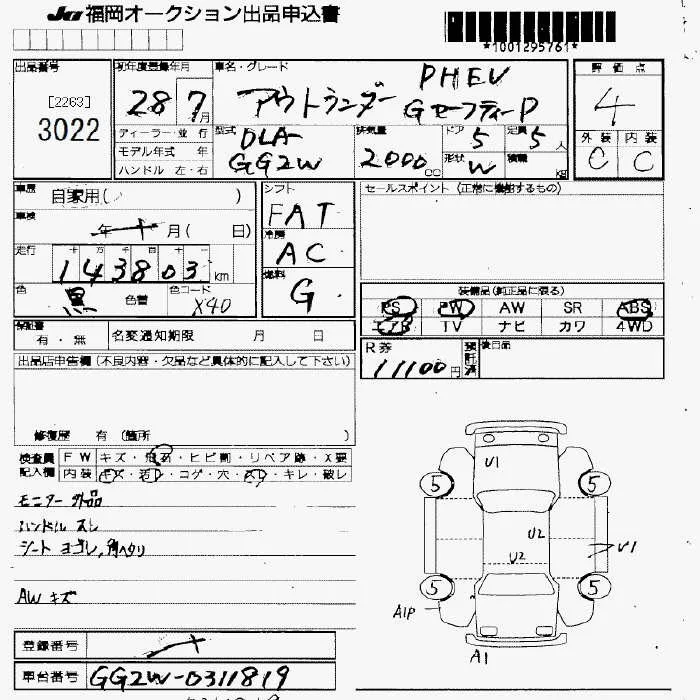 JU 福岡オークション出品申込書
*1001295761*
出品番号
[2263]
3022
初年度登録年月
28 7月
車名・グレード
PHEV
アウトランダー GセーフティーP
評価点
4
外装 内装
C C
ディーラー・並行
モデル年式 年
ハンドル 左・右
型式
DLA-
GG2W
排気量
2000 cc
ドア
5
定員
5人
形状
W
積載
kg
車歴
自家用( )
車検
年 月( 日)
走行
十 万 千 百 十 一
143803 km
色
黒
色替
色コード
X40
シフト
FAT
冷房
AC
燃料
G
セールスポイント (正常に機能するもの)
装備品(純正品に限る)
PS PW AW SR ABS
エアB TV ナビ カワ 4WD
保証書
有・無
名変通知期限 月 日
R券
11100円
預託済
後日品
出品店申告欄(不良内容・欠品など具体的に記入して下さい)
修復歴 有 (箇所 )
検査員記入欄
FW キズ・飛石・ヒビ割・リペア跡・X要
内装 キズ・汚レ・コゲ・穴・スレ・キレ・破レ
モニター 外品
ハンドル スレ
シート ヨゴレ,角ヘタリ
AW キズ
登録番号
車台番号
GG2W-0311819
U1
5
5
U2
U2
U1
5
5
A1P
A1